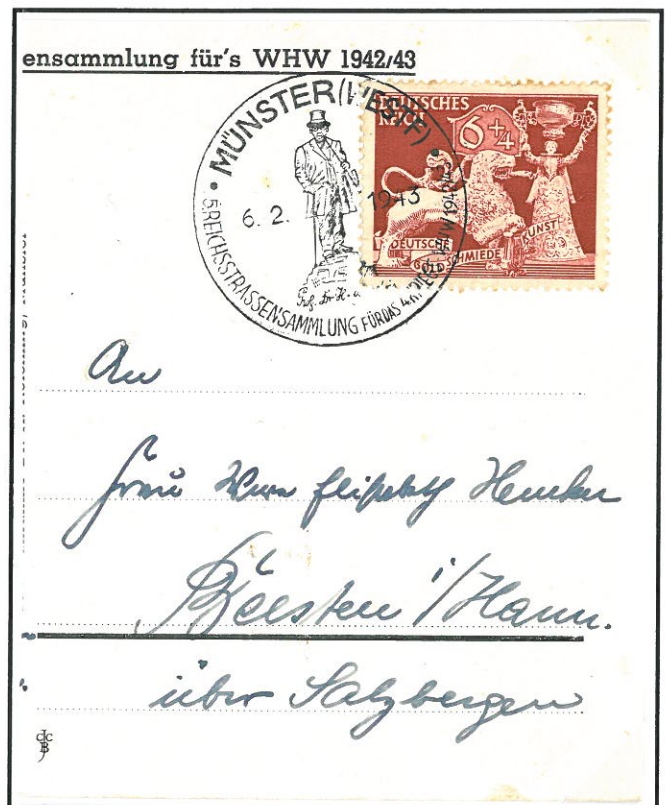 ensammlung für's WHW 1942/43
MÜNSTER (WESTF)
6. 2. 1943
5. REICHSSTRASSENSAMMLUNG FÜR DAS 4. KRIEGS WHW 1942/43
DEUTSCHES
REICH
6+4
DEUTSCHE
GOLD SCHMIEDE
KUNST
An
Frau Elisabeth
i/Hann.
über Salzbergen